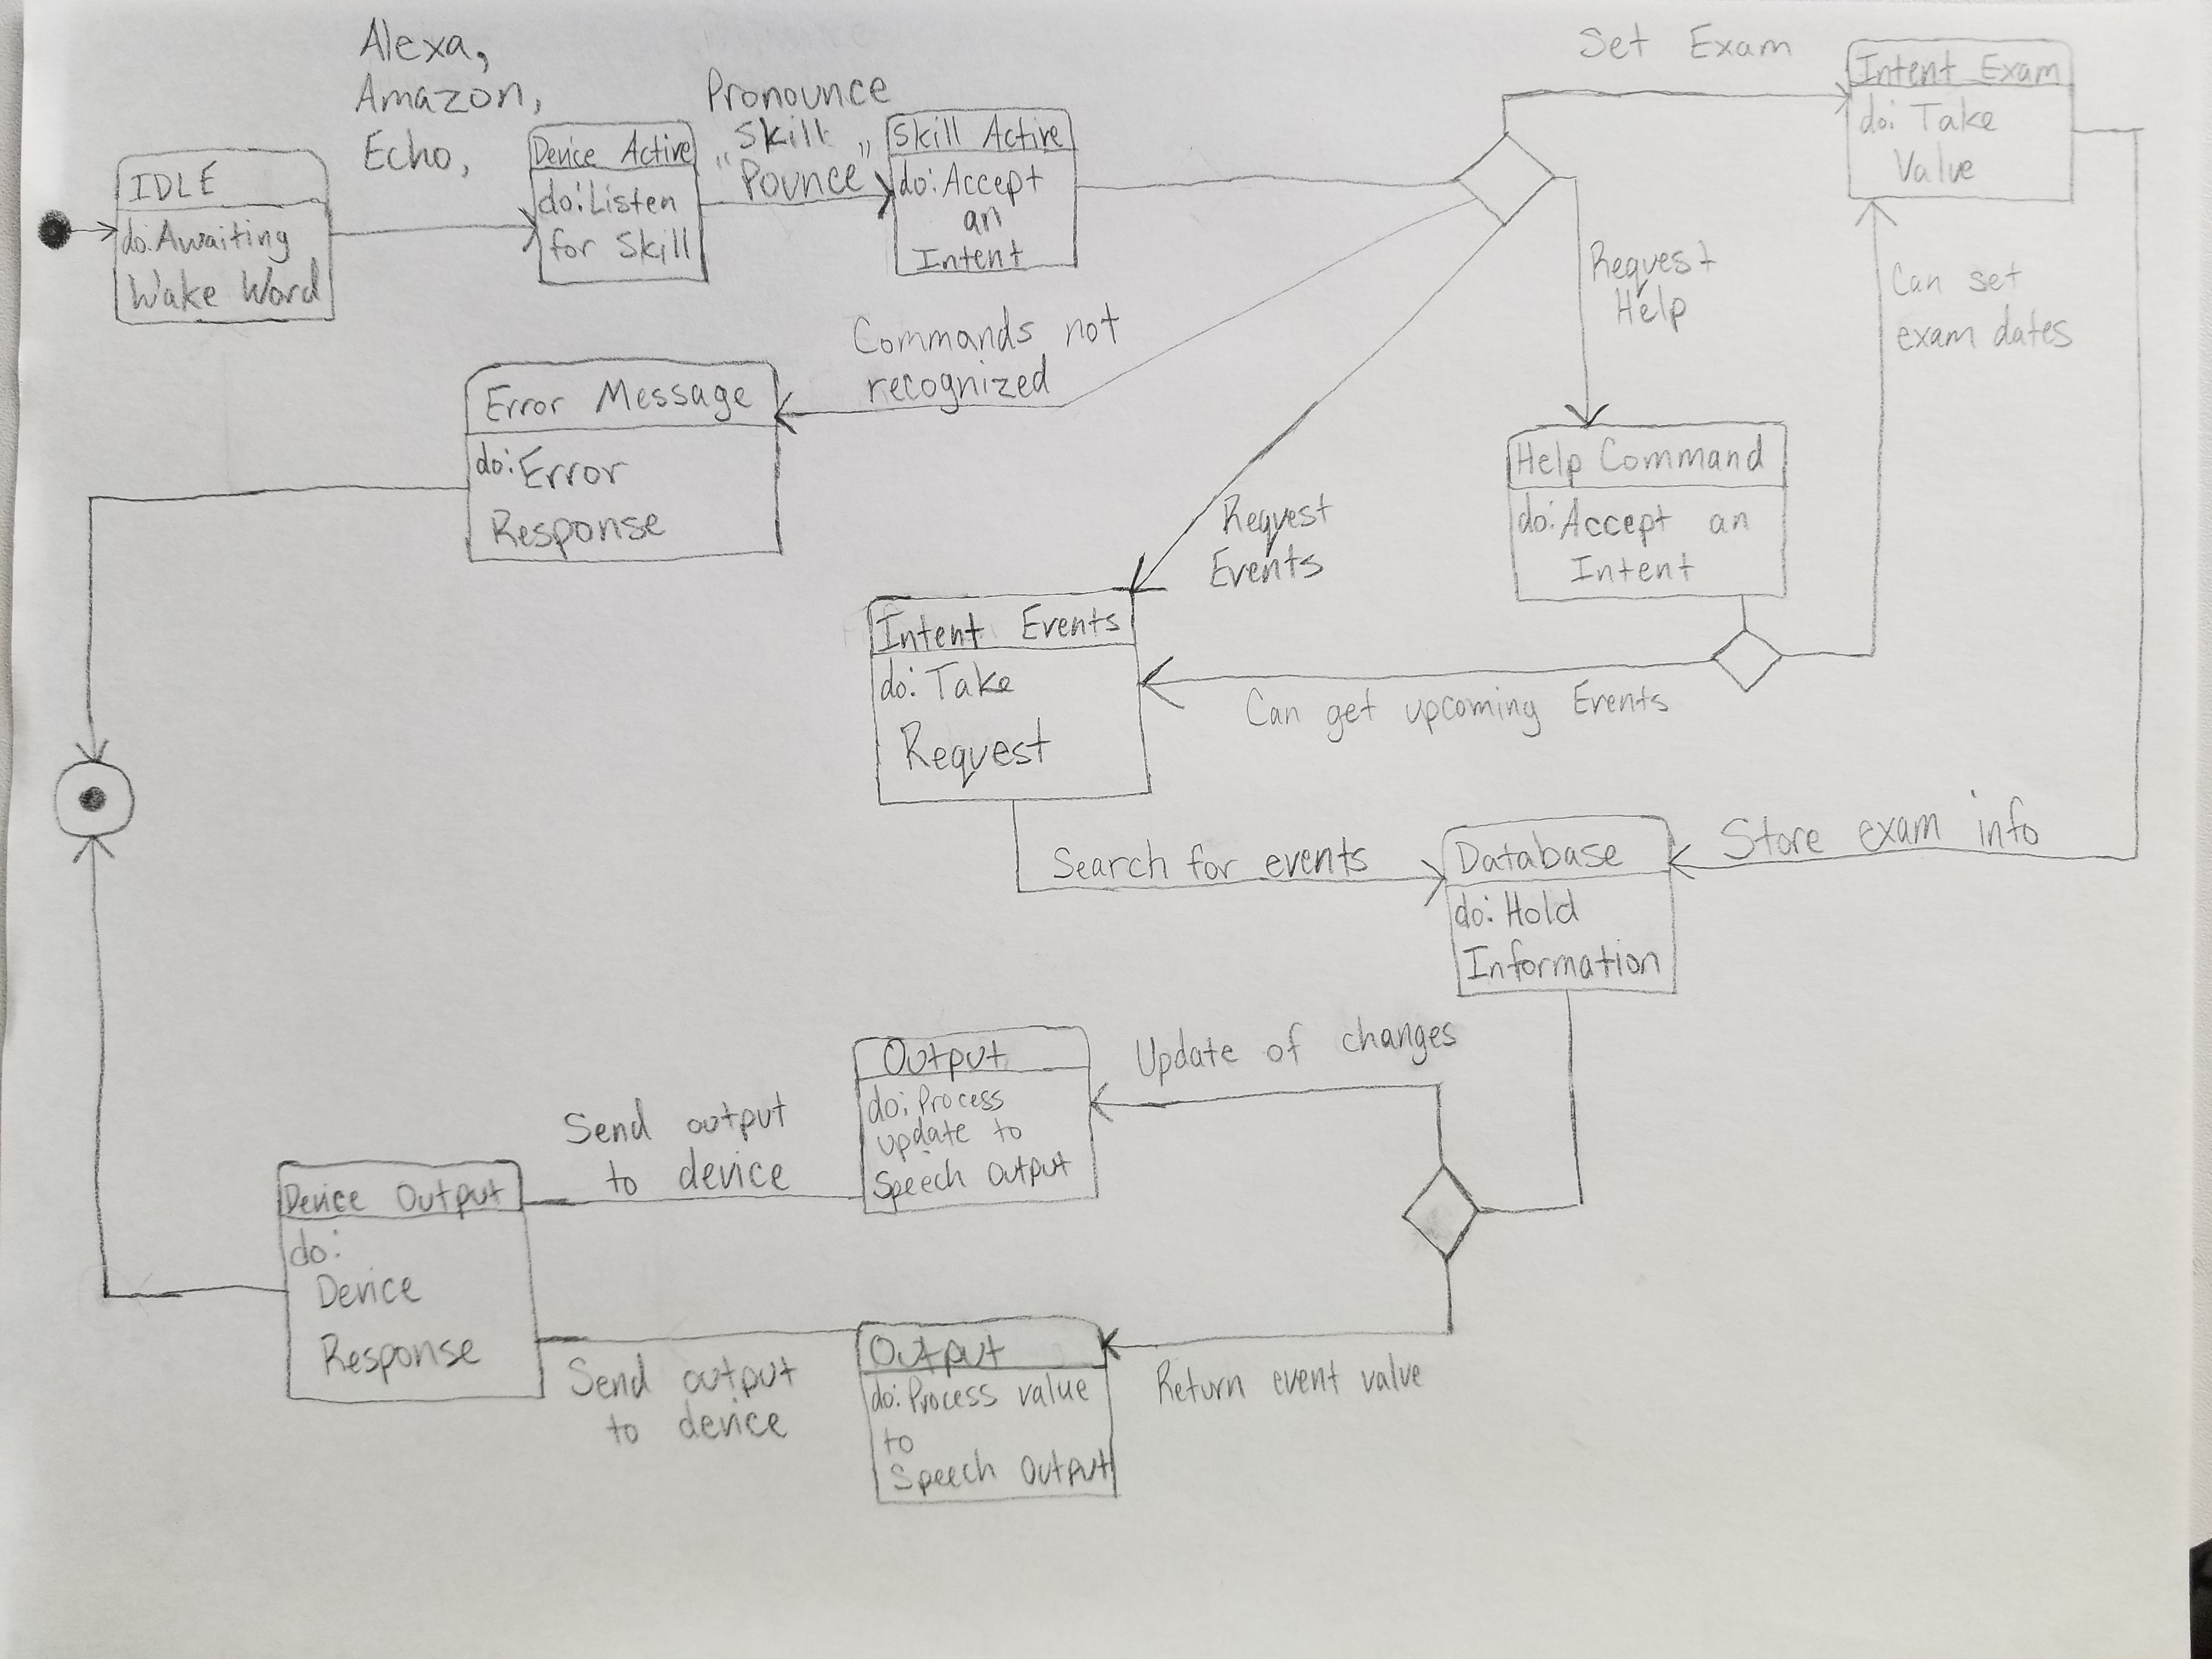 Alexa,
Amazon,
Echo,
IDLE
do: Awaiting
Wake Word
Device Active
do: Listen
for Skill
Pronounce
Skill
"Pounce"
Skill Active
do: Accept
an
Intent
Set Exam
Intent Exam
do: Take
Value
Request
Help
Can set
exam dates
Commands not
recognized
Error Message
do: Error
Response
Request
Events
Help Command
do: Accept an
Intent
Intent Events
do: Take
Request
Can get upcoming Events
Search for events
Database
do: Hold
Information
Store exam info
Update of changes
Output
do: Process
update to
Speech Output
Send output
to device
Device Output
do:
Device
Response
Send output
to device
Output
do: Process value
to
Speech Output
Return event value